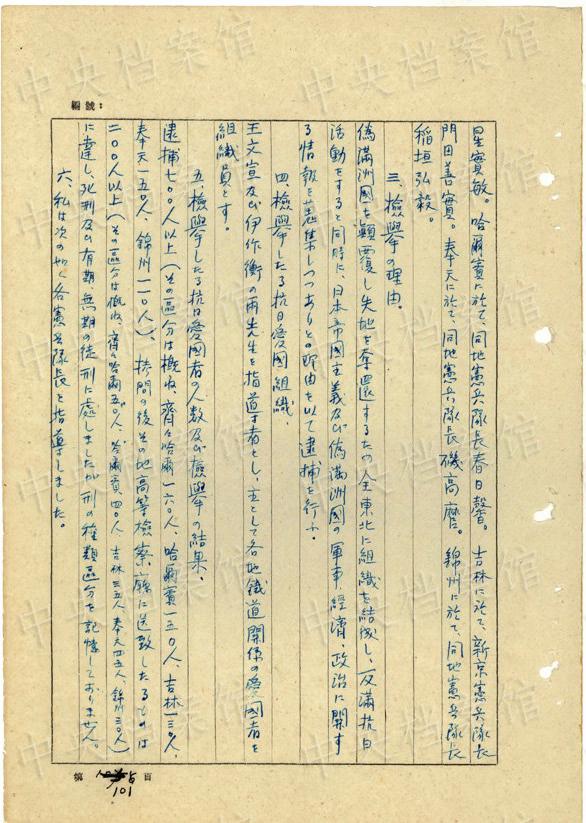 中央档案馆
編號：
星實敏。哈爾賓に於て、同地憲兵隊長春日馨。吉林に於て、新京憲兵隊長
門田善實。奉天に於て、同地憲兵隊長磯高麿。錦州に於て、同地憲兵隊長
稲垣弘毅。
三、檢擧の理由。
偽滿洲國を顛覆し失地を奪還するため全東北に組織を結成し、反滿抗日
活動をすると同時に、日本帝國主義及び偽滿洲國の軍事、經濟、政治に関す
る情報を蒐集しつつありとの理由を以て逮捕を行ふ。
四、檢擧したる抗日愛國組織、
王文宣及び伊作衡の両先生を指導者とし、主として各地鐵道関係の愛國者を
組織員とす。
五、檢擧したる抗日愛國者の人数及び檢擧の結果、
逮捕七〇〇人以上（その區分は概ね、齊々哈爾一六〇人、哈爾賓一五〇人、吉林一三〇人、
奉天一五〇人、錦州一一〇人）、拷問の後その地高等檢察廳に送致したるものは
二〇〇人以上（その區分は概ね、齊々哈爾五〇人、哈爾賓四〇人、吉林三五人、奉天四五人、錦州三〇人）
に達し、死刑及び有期無期の徒刑に處しましたが刑の種類區分を記憶しておりません。
六、私は次の如く各憲兵隊長を指導しました。
第 101 頁